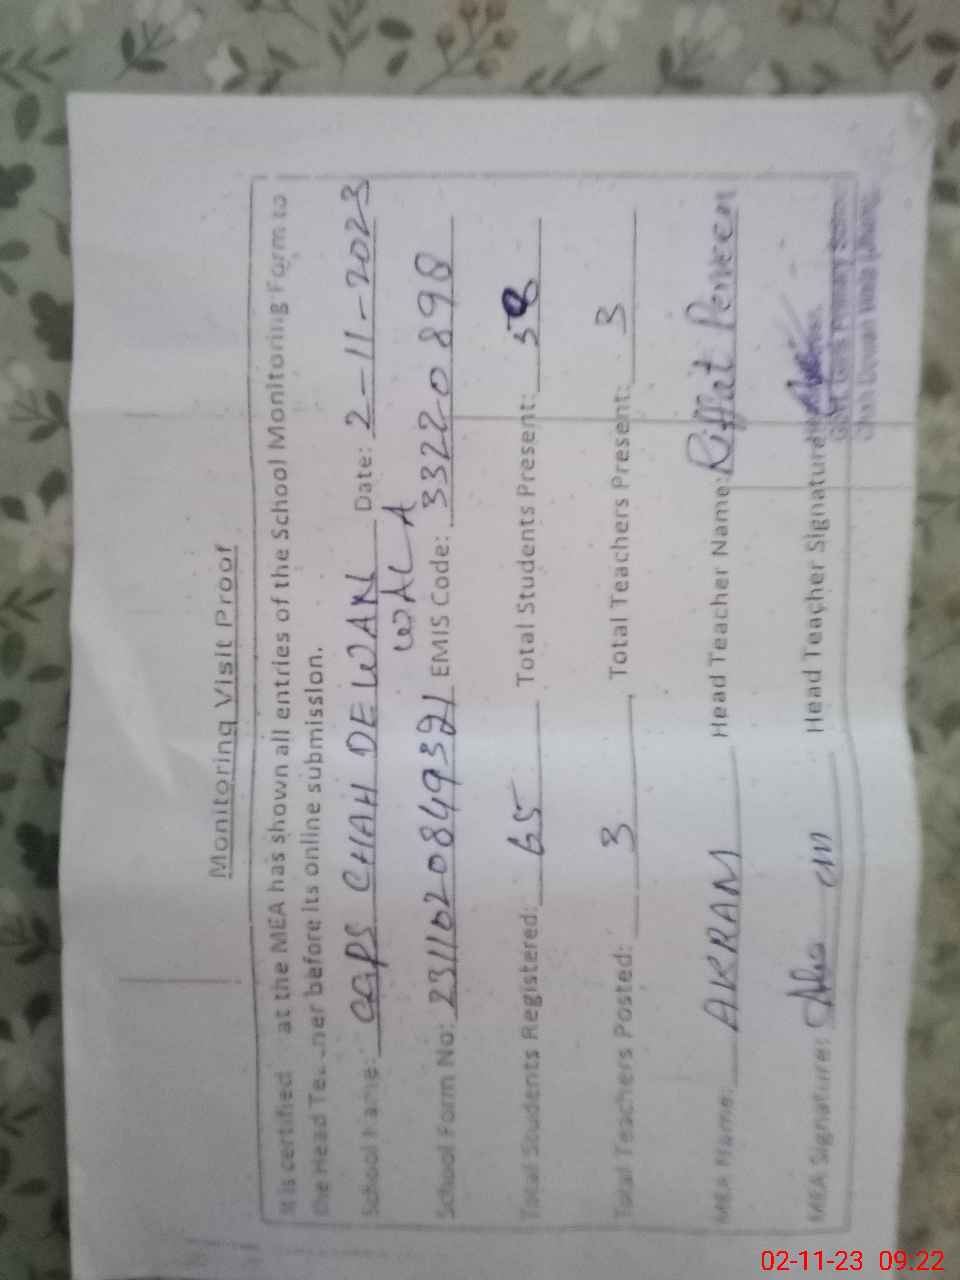 Monitoring Visit Proof
It is certified at the MEA has shown all entries of the School Monitoring Form to
the Head Te...ner before its online submission.
School Name: GGPS CHAH DEWAN Date: 2-11-2023
WALA
School Form No: 2311020849321 EMIS Code: 33220898
Total Students Registered: 65 Total Students Present: 58
Total Teachers Posted: 3, Total Teachers Present: 3
MEA Name: AKRAM Head Teacher Name: Riffat Perveen
MEA Signature: Head Teacher Signature
Govt. Girls Primary School
Chah Dewan Wala
02-11-23 09:22